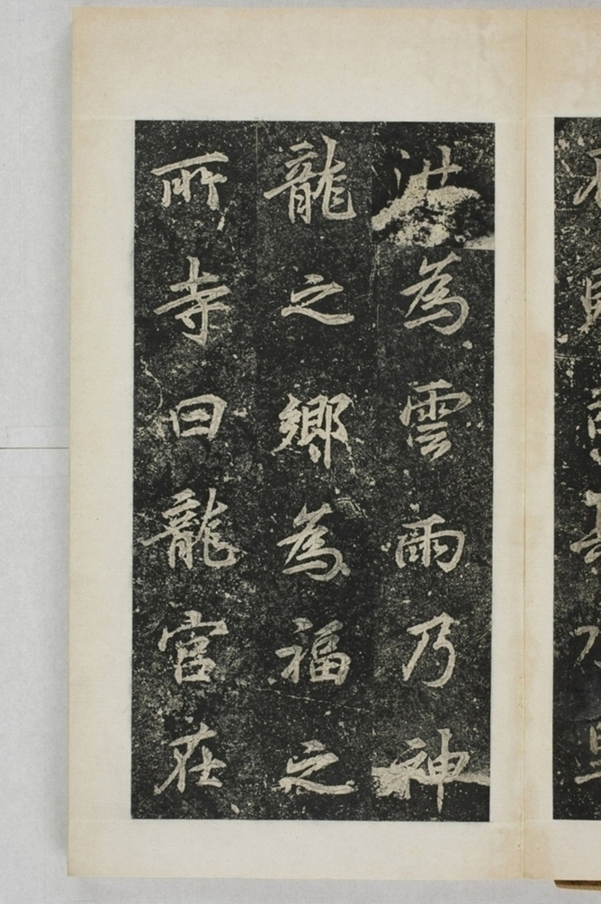 為雲雨乃神
龍之鄉為福之
所寺曰龍宮在